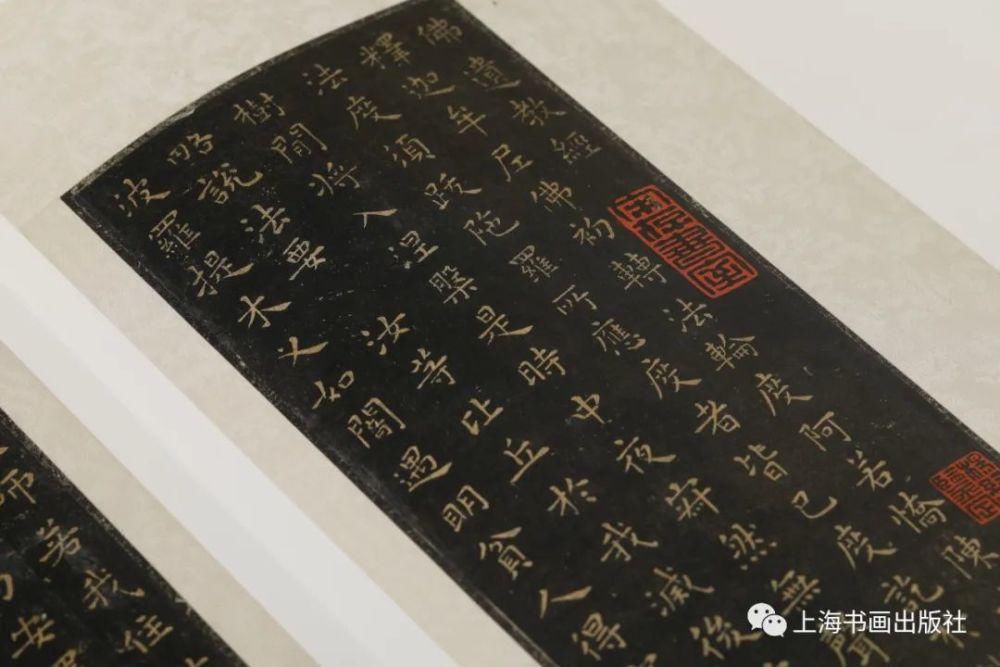 佛遺教經
釋迦牟尼佛初轉法輪度阿若憍陳
法度須跋陀羅所應度者皆已度訖
樹間將入涅槃是時中夜寂然無聲
略說法要汝等比丘於我滅後
波羅提木叉如闇遇明貧人得
師若我住
安
上海书画出版社